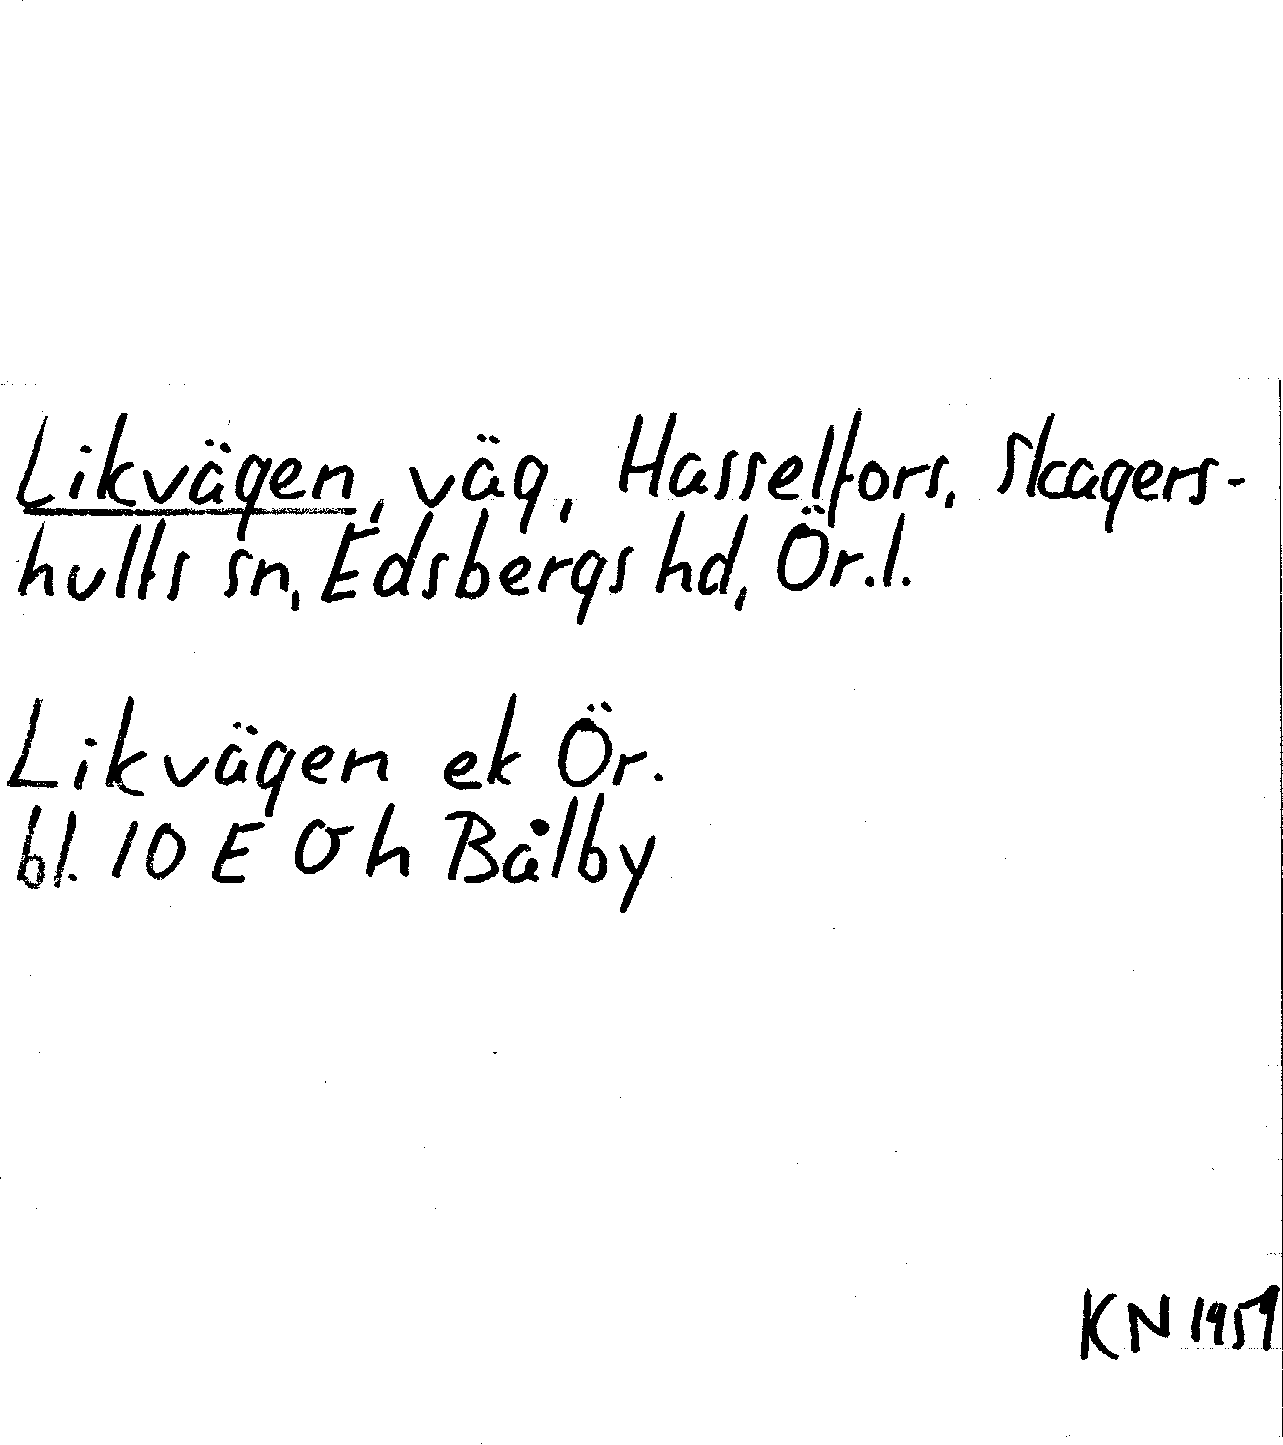 Likvägen, väg, Hasselfors, Skagers-
hults sn, Edsbergs hd, Ör.l.
Likvägen ek Ör.
bl. 10 E 0 h Bålby
KN